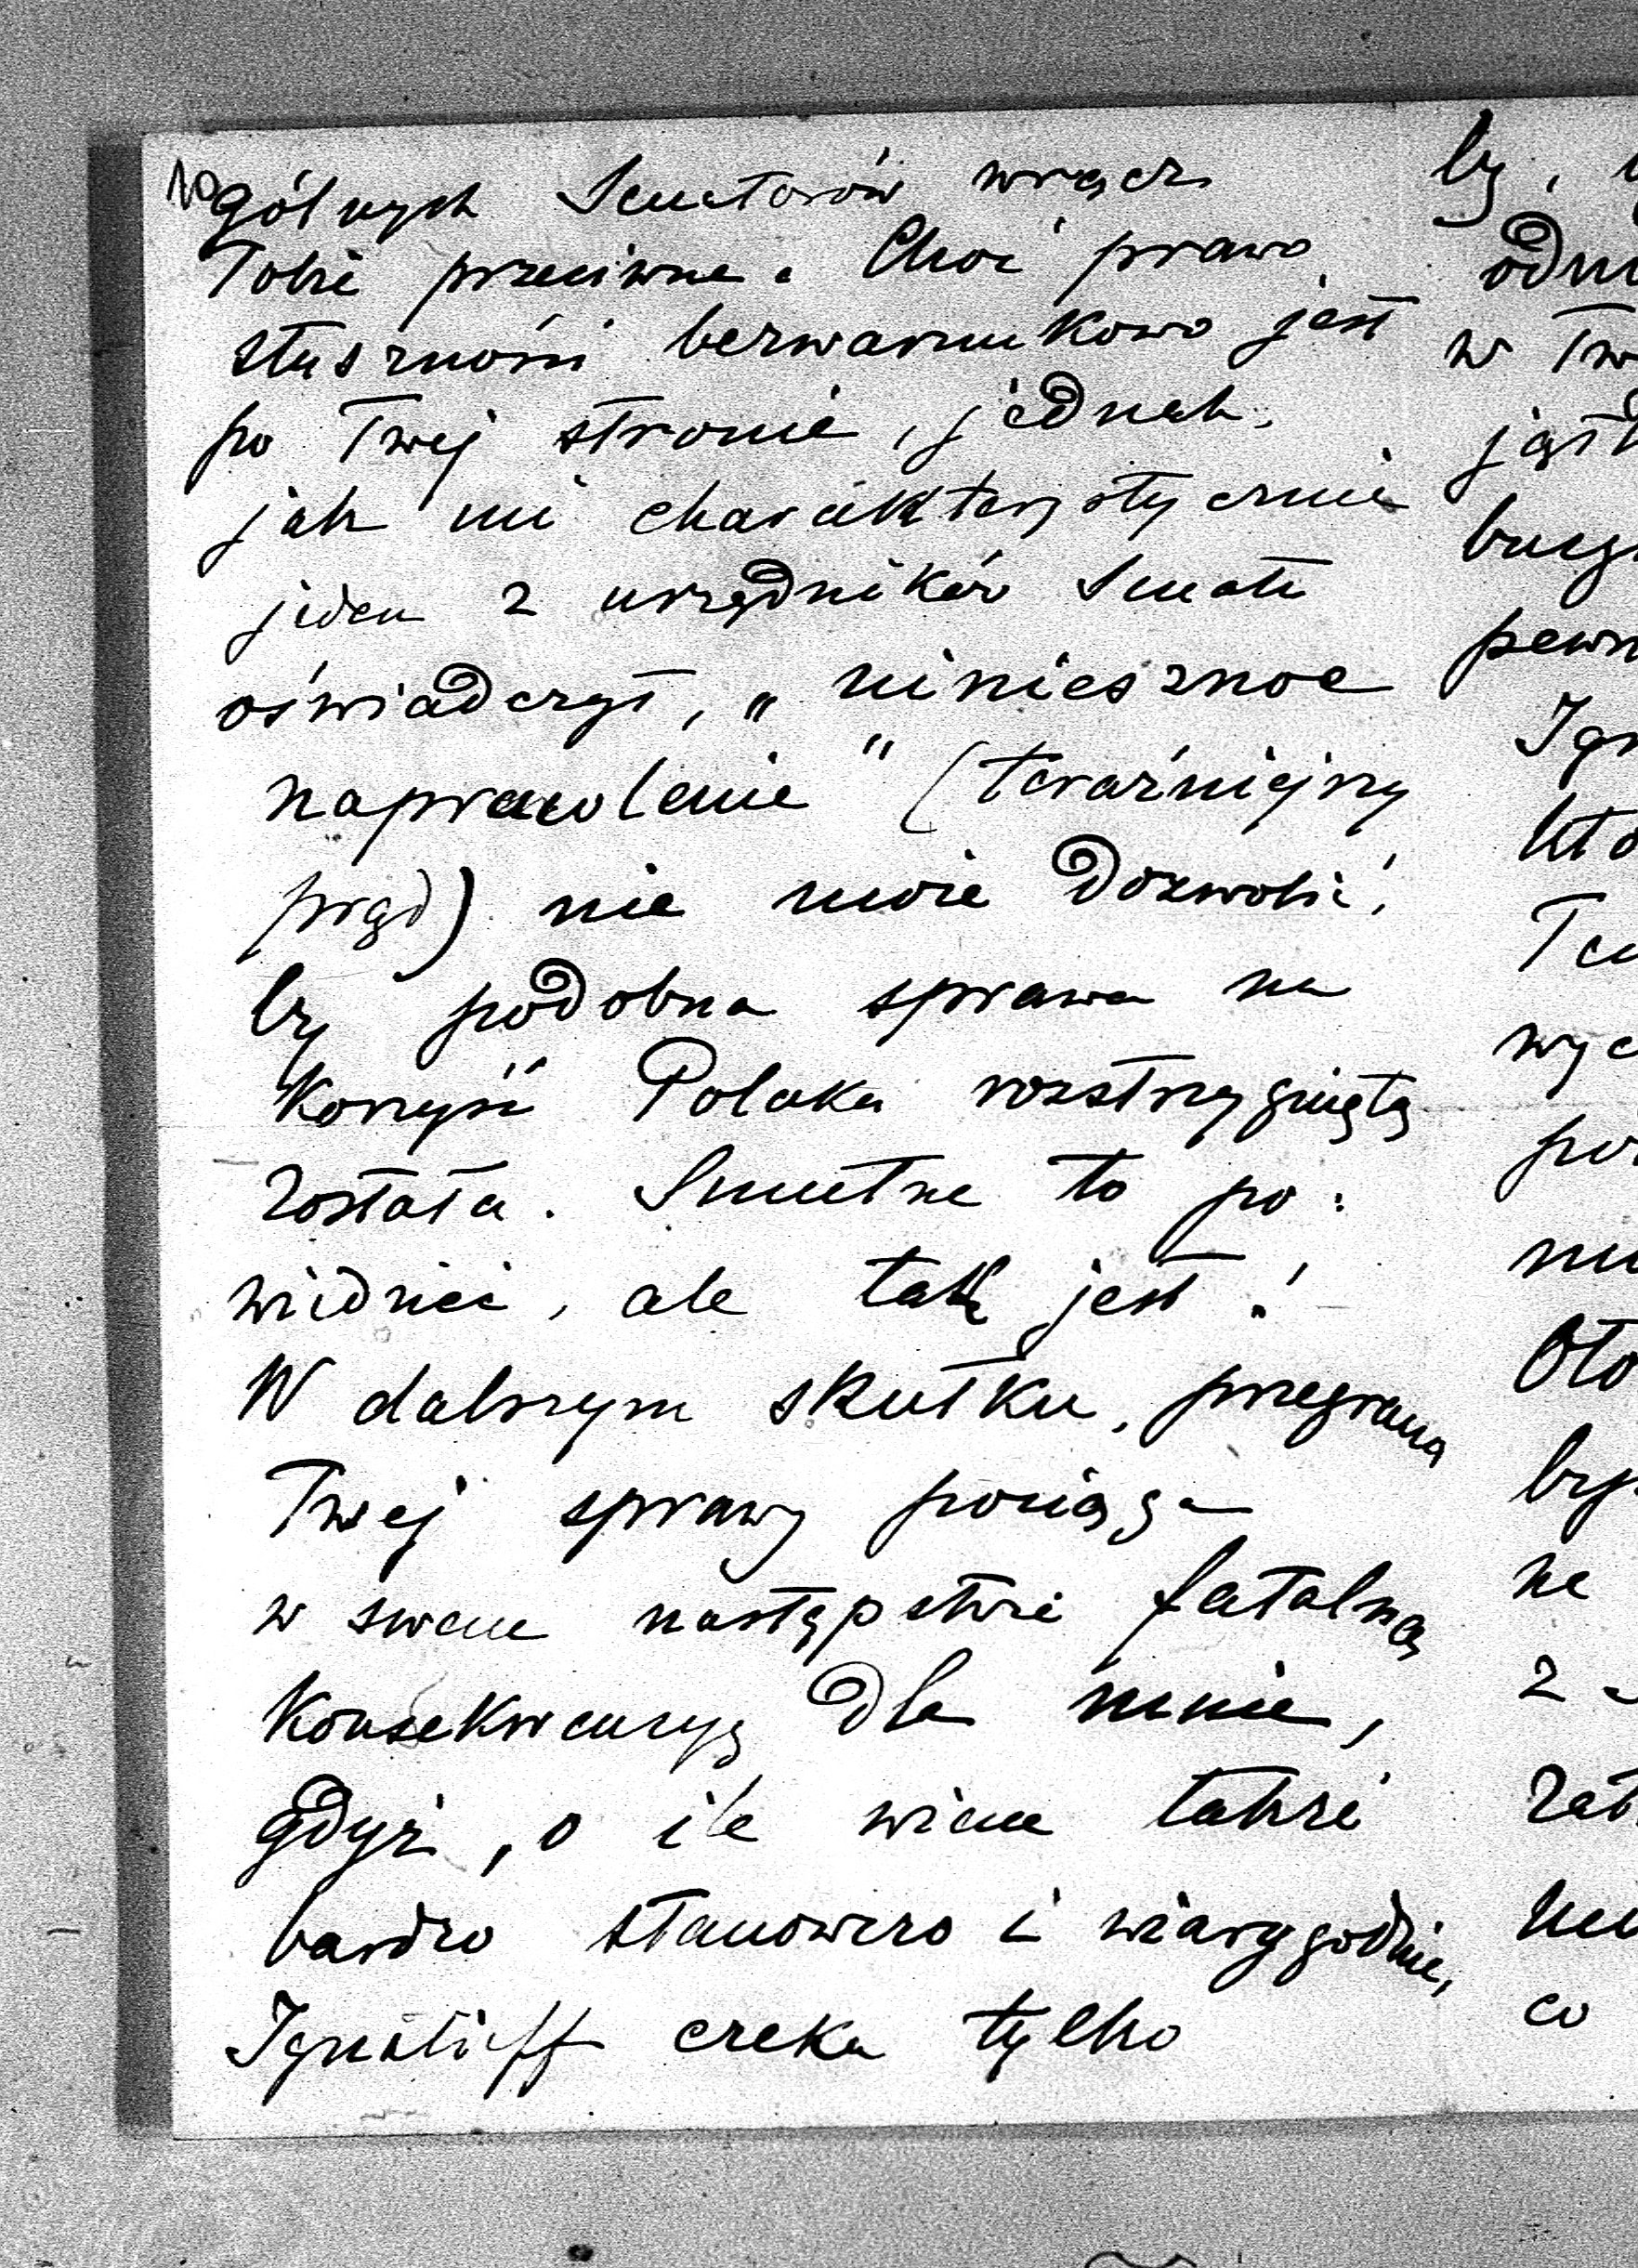 gólnych Senatorów wręcz
Tobie przeciwne. Choć prawo
słuszności bezwarunkowo jest
po Twej stronie, jednak,
jak mi charakterystycznie
jeden z urzędników Senatu
oświadczył, „niniesznoe
naprawlenie" (teraźniejszy
prąd) nie może dozwolić,
by podobna sprawa na
korzyść Polaka rozstrzygniętą
została. Smutne to po:
wiedzieć, ale tak jest!
W dalszym skutku, przegrana
Twej sprawy pociąga
w swem następstwie fatalną
konsekwencyę dla mnie,
gdyż, o ile wiem także
bardzo stanowczo i wiarygodnie,
Ignatieff czeka tylko
by,
w Tw
pewn
Ign
kto
wyc
Oto
ne
z
co